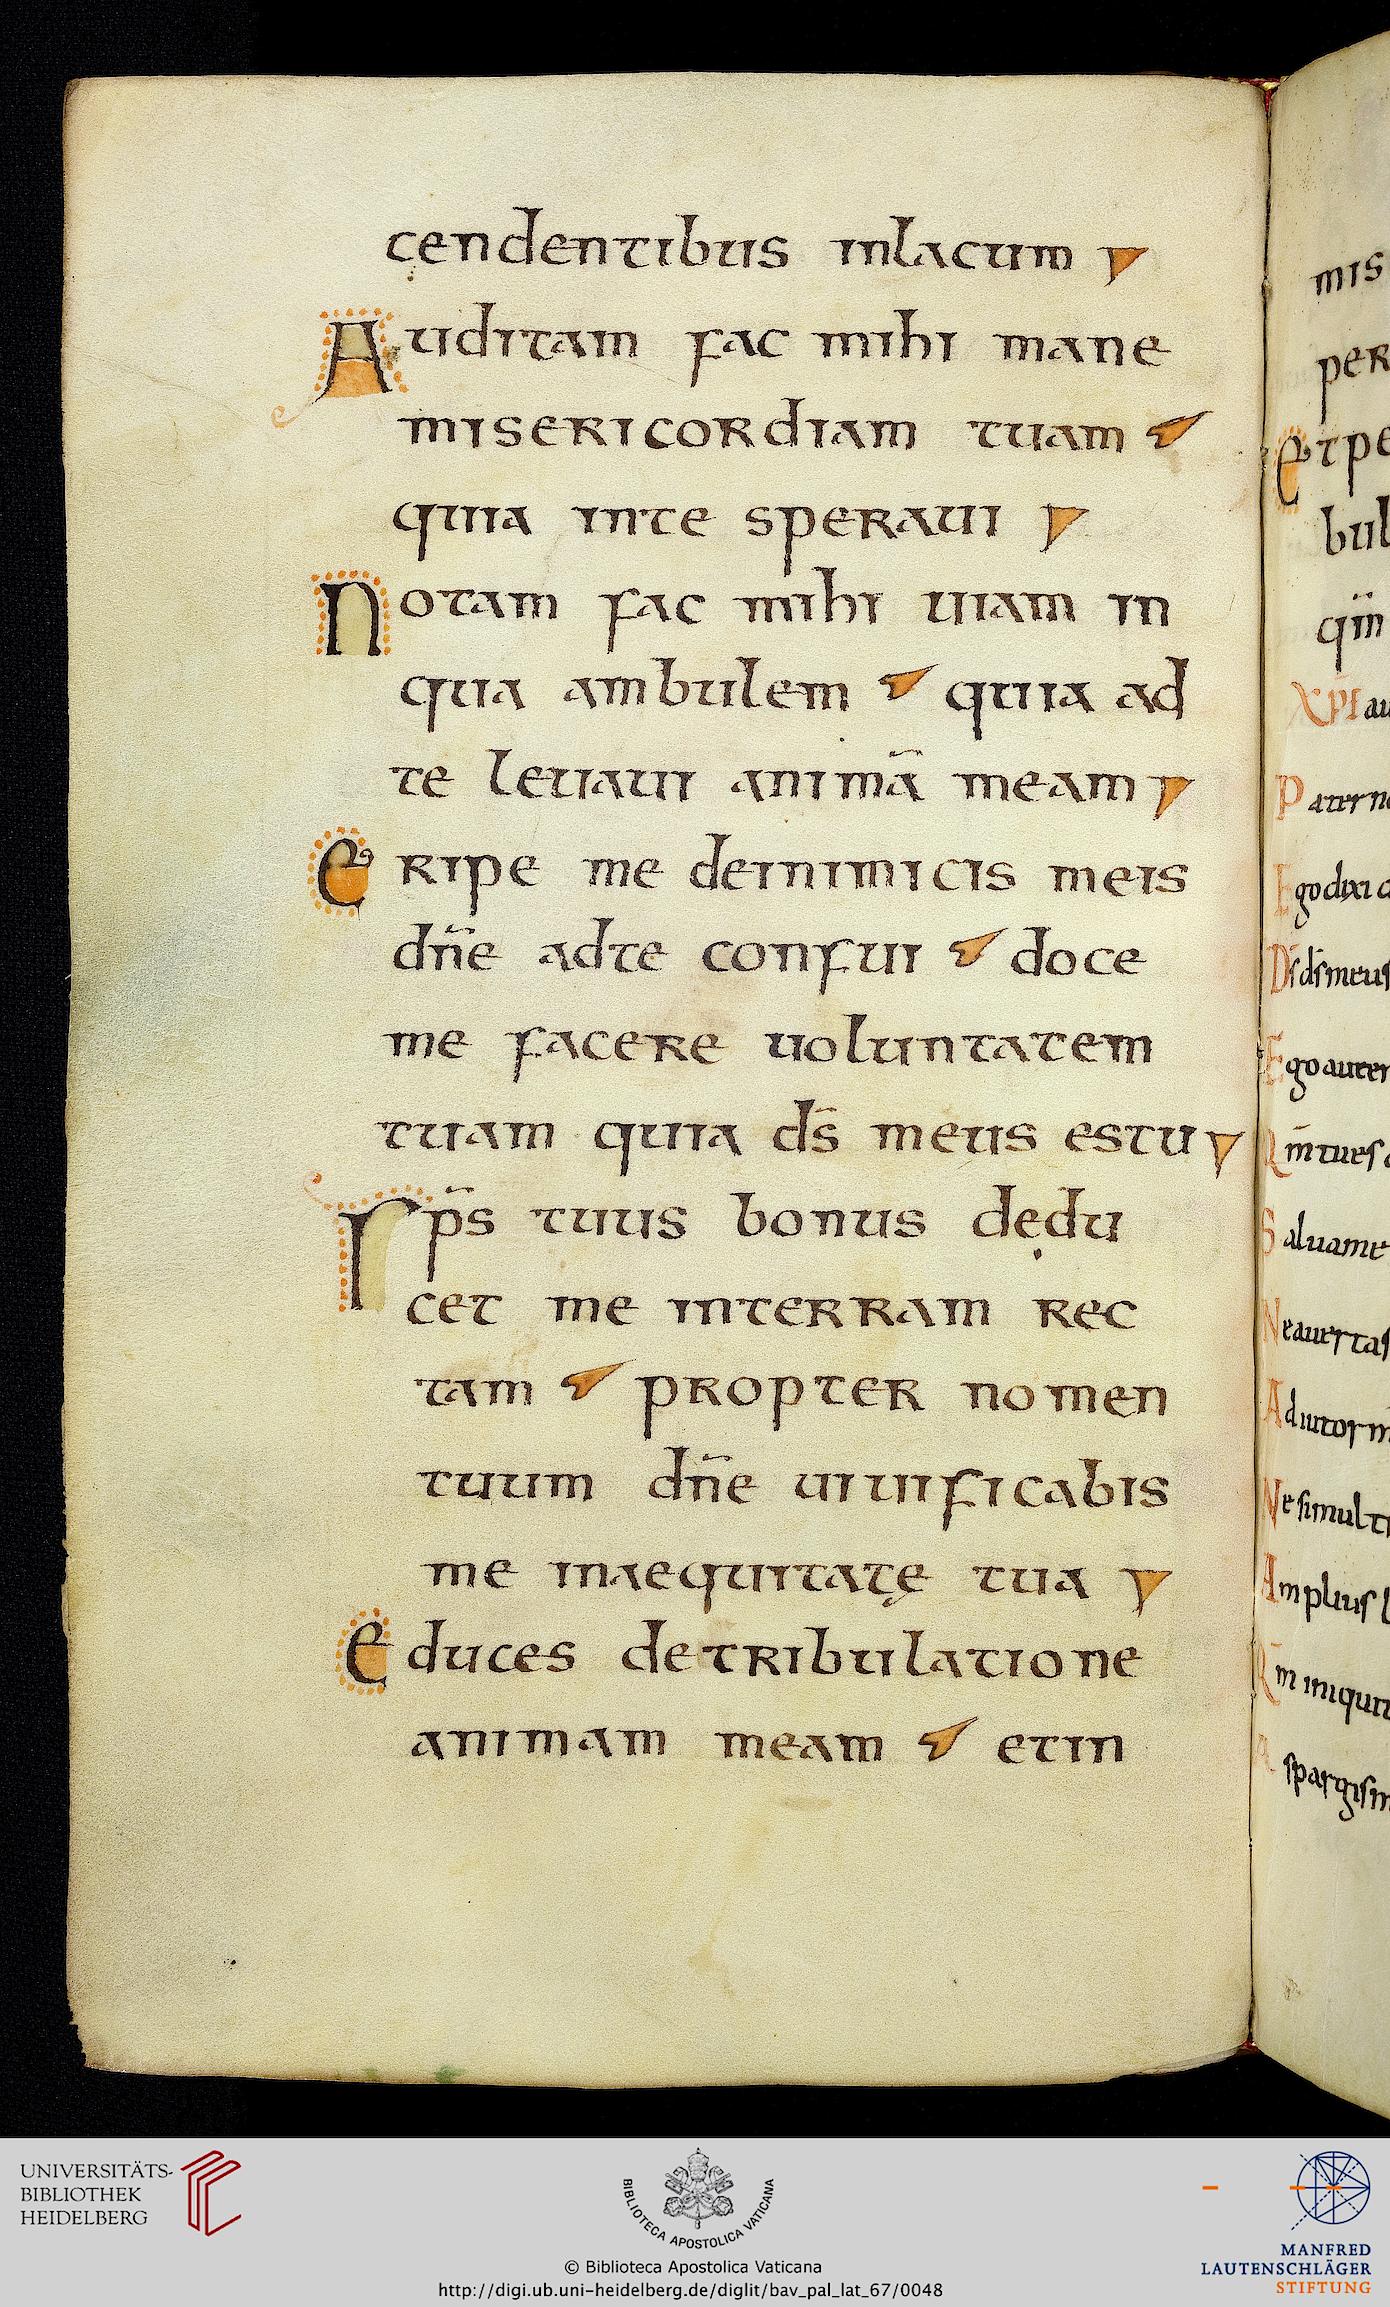 cendentibus inlacum
Auditam fac mihi mane
misericordiam tuam
quia inte speraui
Notam fac mihi uiam in
qua ambulem quia ad
te leuaui animā meam
Eripe me deinimicis meis
dn̄e adte confui doce
me facere uoluntatem
tuam quia ds̄ meus estu
sp̄s tuus bonus dedu
cet me interram rec
tam propter nomen
tuum dn̄e uiuificabis
me inaequitatę tua
Educes detribulatione
animam meam etin
mis
per
Etpe
bul
qm̄
XPI au
Paterno
Ego dixi c
Ds̄ ds̄ meus
Ego autem
Qm̄ tu es
Saluame
Neauertas
Adiutor m
Nesimult
Amplius l
Qm̄ iniqui
Aspargism
UNIVERSITÄTS-
BIBLIOTHEK
HEIDELBERG
BIBLIOTECA APOSTOLICA VATICANA
© Biblioteca Apostolica Vaticana
http://digi.ub.uni-heidelberg.de/diglit/bav_pal_lat_67/0048
MANFRED
LAUTENSCHLÄGER
STIFTUNG